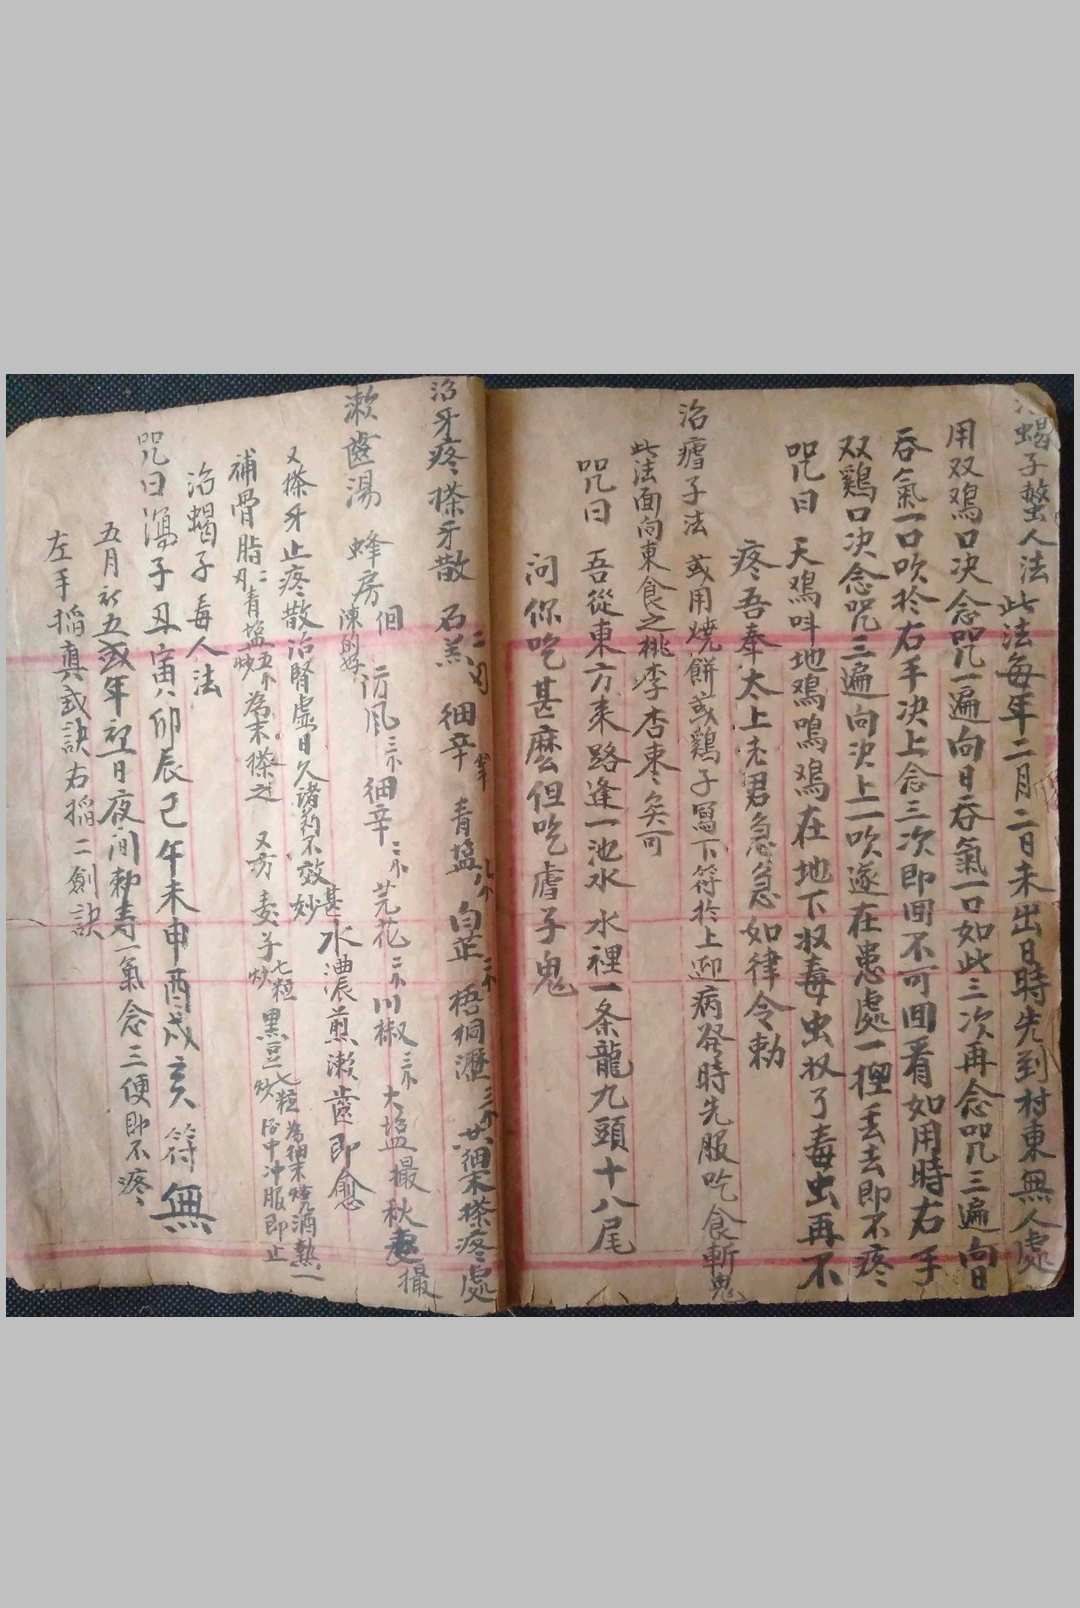 蝎子螫人法 此法每年二月二日未出日時先到村東無人處
用双鸡口决念咒一遍向日吞氣一口如此三次再念咒三遍向日
吞氣一口吹於右手决上念三次即囬不可囬看如用時右手
双鷄口决念咒三遍向决上一吹遂在患處一揑丢去即不疼
咒曰 天鸡呌地鸡鳴鸡在地下扠毒虫扠了毒虫再不
疼吾奉太上老君急急如律令勅
治瘧子法 或用燒餅或鷄子寫下符於上迎病發時先服吃食斬鬼
此法面向東食之桃李杏棗矣可
咒曰 吾從東方来路逢一池水 水裡一条龍九頭十八尾
问你吃甚麽但吃瘧子鬼
治牙疼搽牙散 石羔二 细辛 青塩 白芷二 梧桐瀝三 共細末搽疼處
漱齒湯 蜂房個陳的好 防风三 细辛二 芫花二 川椒三 大塩撮 秋 撮
水濃煎漱齒即愈
又搽牙止疼散治腎虚日久諸药不效甚妙
補骨脂二 青塩五炒為末搽之 又方 子七粒炒 黑豆七粒炒 為細末燒酒熱一 中冲服即止
治蝎子毒人法
咒曰 子丑寅卯辰巳午未申酉戌亥 符 無
五月初五或年初日夜间勅 一氣念三便即不疼
左手稲真武訣右稲二劍訣